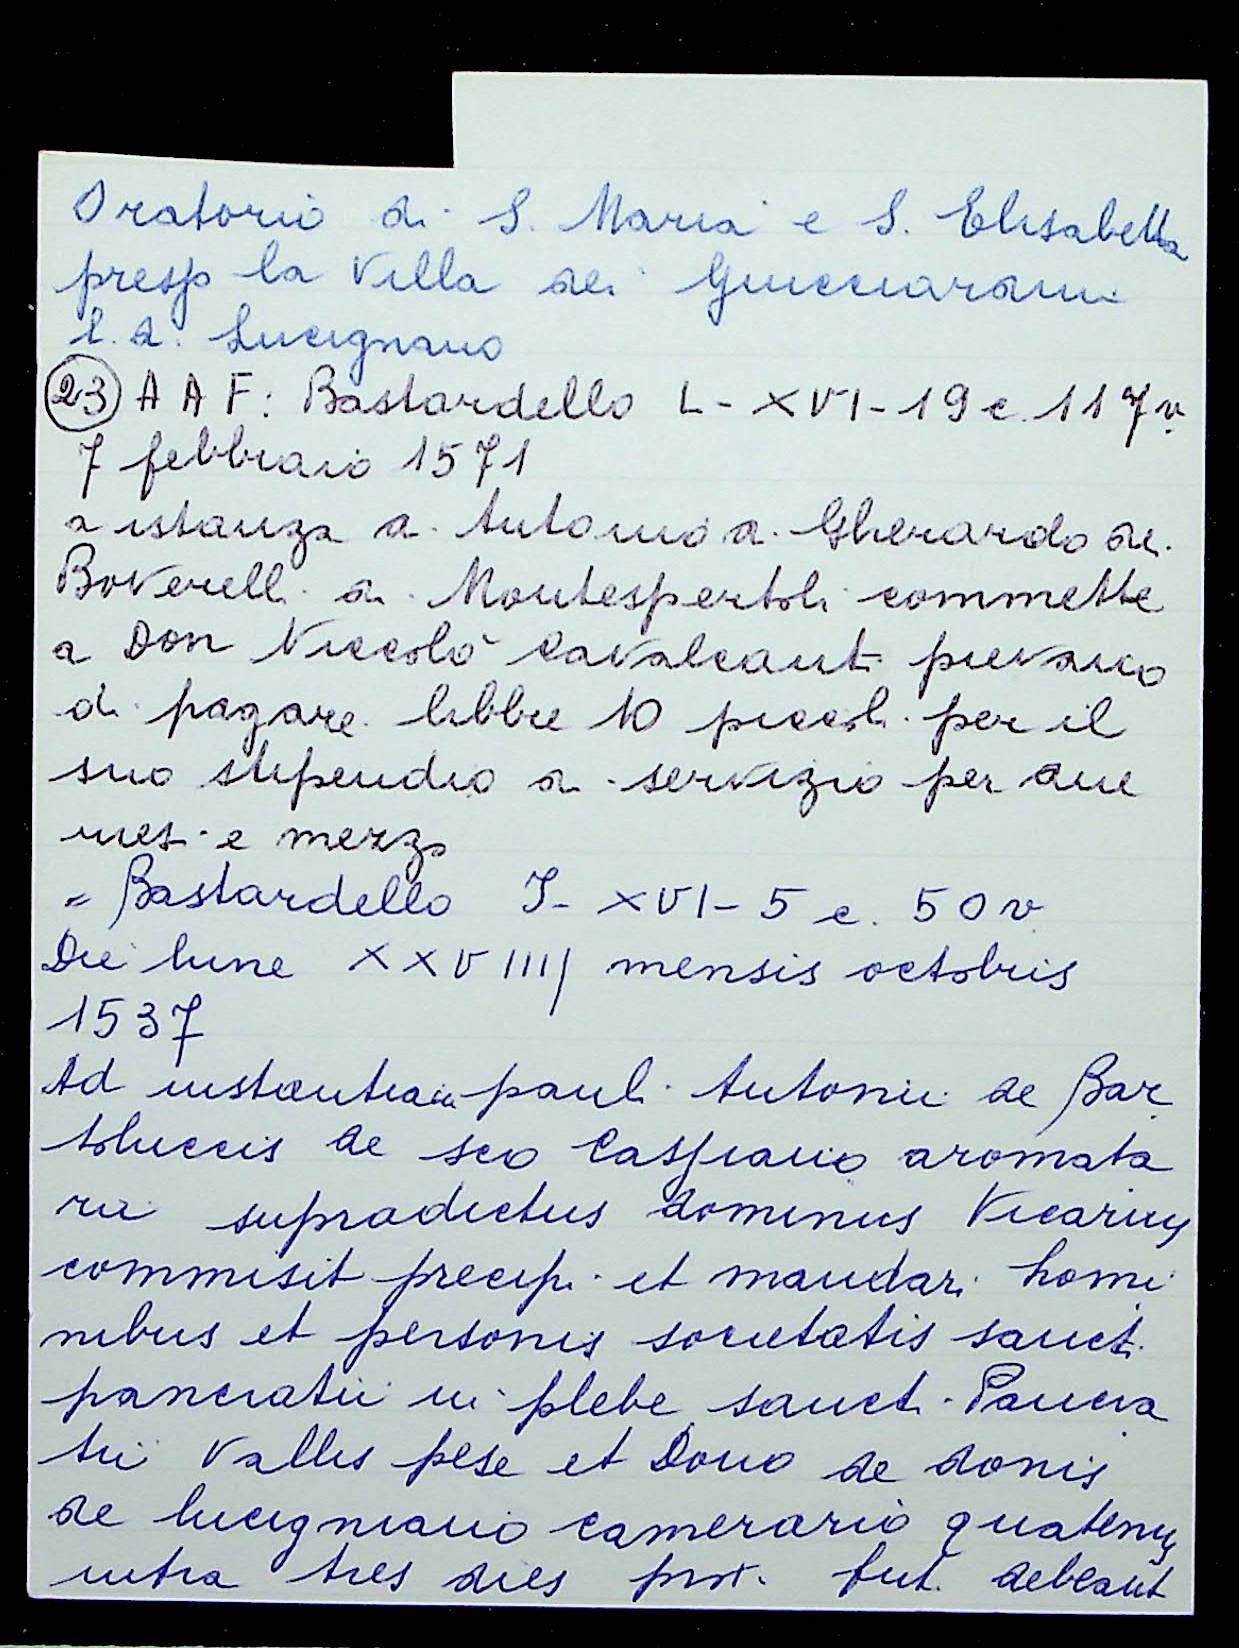 Oratorio di S. Maria e S. Elisabetta
presso la Villa dei Guicciardini
l.d. Lucignano
23 A A F: Bastardello L- XVI-19 c. 117v
7 febbraio 1571
a istanza di Antonio di Gherardo dei
Boverelli di Montespertoli commette
a Don Niccolò Cavalcanti pievano
di pagare libbre 10 piccoli per il
suo stipendio di servizio per due
mesi e mezzo
= Bastardello I- XVI- 5 c. 50v
Die lune XXVIIIJ mensis octobris
1537
Ad instantiam pauli Antonii de Bar
toluccis de sco Cassiano aromata
rii supradictus dominus Vicarius
commisit precipi et mandari homi
nibus et personis societatis sancti
pancratii in plebe sancti Pancra
tii Vallis pese et Dono de donis
de lucigniano camerario quatenus
intra tres dies prox. fut. debeant